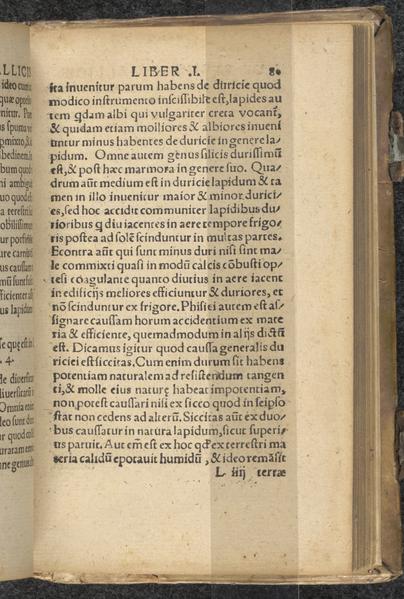 LIBER .I. 80
ita inuenitur parum habens de duricie quod
modico instrumento inscissibile est, lapides au
tem qdam albi qui vulgariter creta vocant̃,
& quidam etiam molliores & albiores inueni
untur minus habentes de duricie in genere la-
pidum. Omne autem genus silicis durissimũ
est, & post hæc marmora in genere suo. Qua/
drum aũt medium est in duricie lapidum & ta
men in illo inuenitur maior & minor durici/
es, sed hoc accidit communiter lapidibus du/
rioribus q diu iacentes in aere tempore frigo/
ris postea ad solẽ scinduntur in multas partes.
Econtra aũt qui sunt minus duri nisi sint ma/
le commixti quasi in modũ calcis cõbusti op/
tesi coagulante quanto diutius in aere iacent
in edificijs meliores efficiuntur & duriores, et
nõ scinduntur ex frigore. Phisici autem est as/
signare caussam horum accidentium ex mate
ria & efficiente, quemadmodum in alijs dictũ
est. Dicamus igitur quod caussa generalis du
riciei est siccitas. Cum enim durum sit habens
potentiam naturalem ad resistendum tangen
ti, & molle eius naturę habeat impotentiam,
non potest caussari nisi ex sicco quod in seipso
stat non cedens ad alterũ. Siccitas aũt ex duo/
bus caussatur in natura lapidum, sicut superi/
us patuit. Aut em̃ est ex hoc qđ ex terrestri ma
teria calidũ epotauit humidũ, & ideo remãsit
L iiij terræ